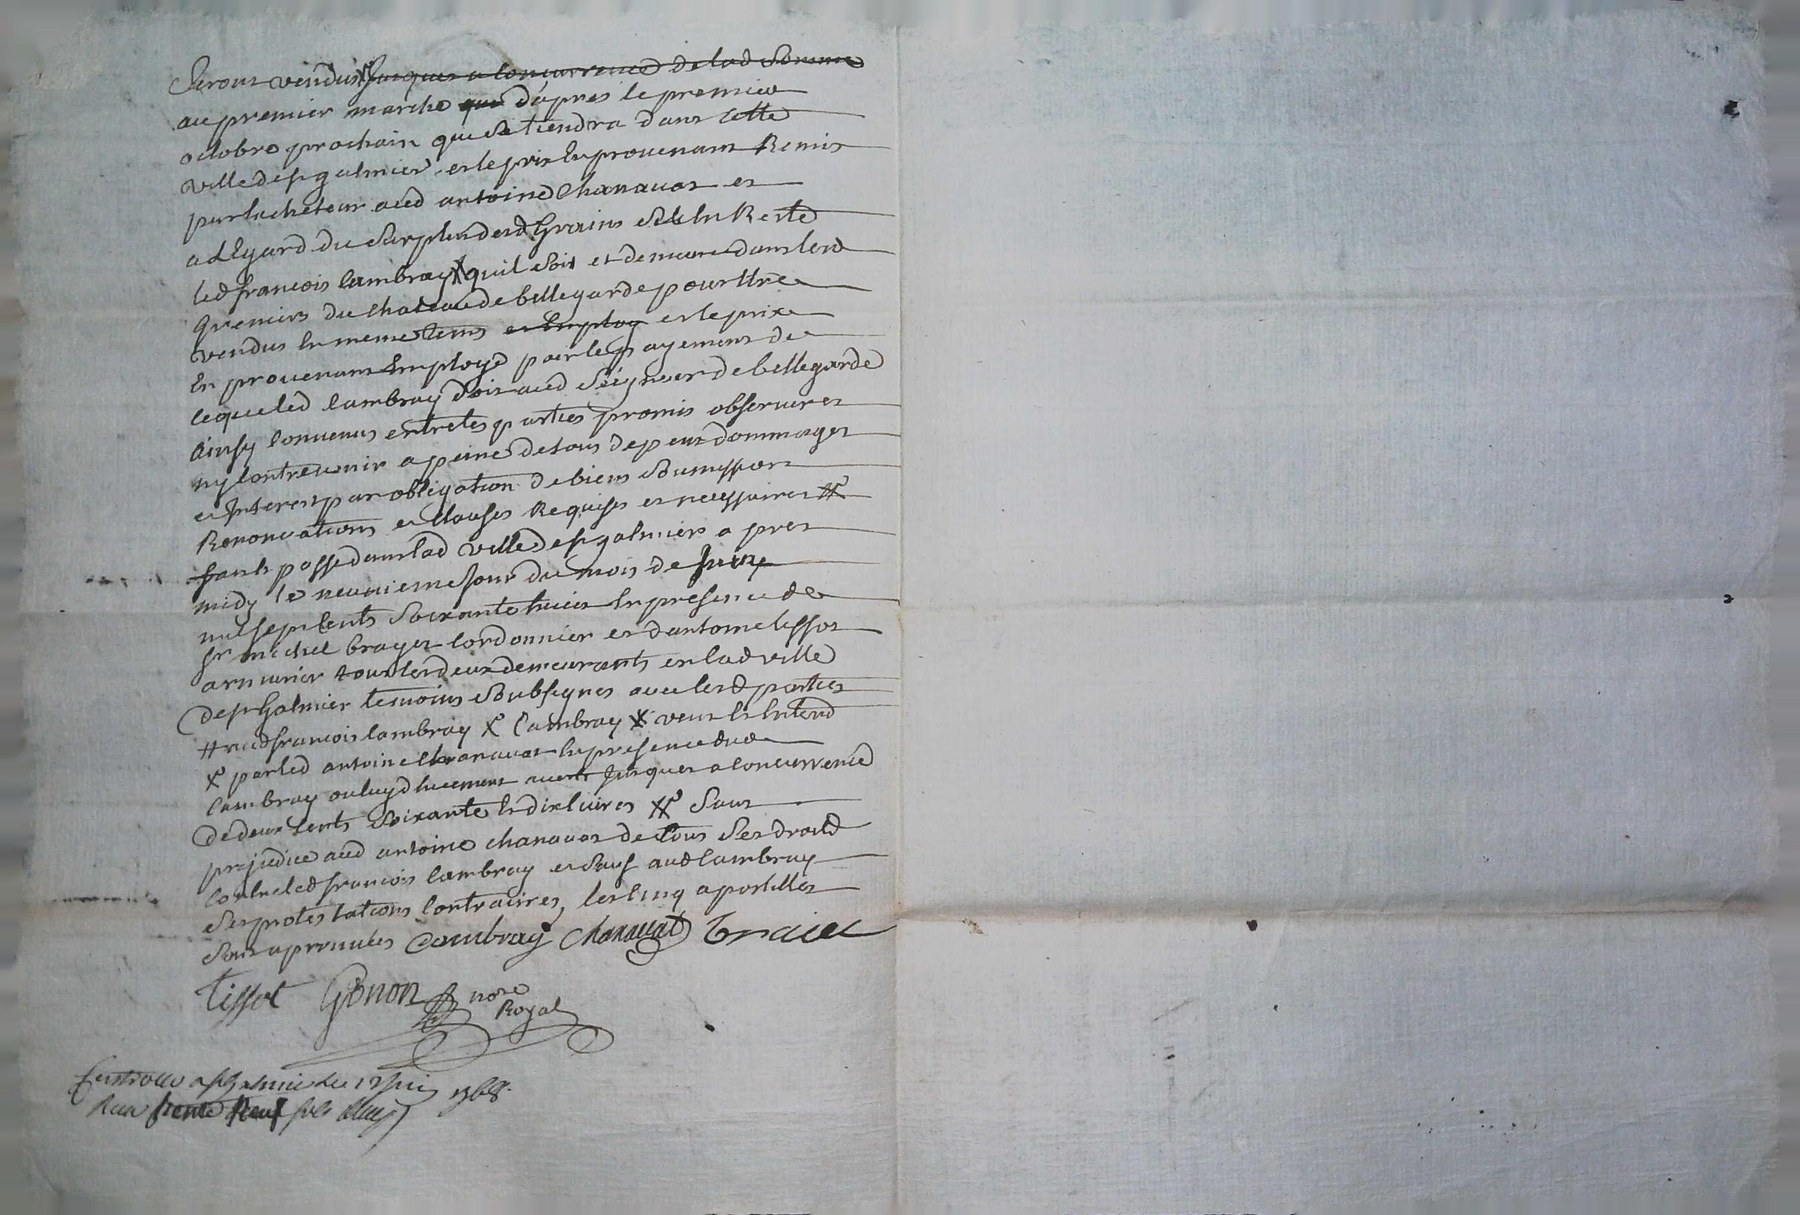 Seront vendus X Jusques a concurrence de lad Somme
au premier marché que d'apres le premier
octobre prochain qui se tiendra dans cette
ville de st galmier et le prix En provenant Remis
par lacheteur aud antoine Chanavat et
a LEgard du Surplus desd Grains Sil En Reste
led francois Cambray X quil soit et demeure dans lesd
Greniers du chateau de bellegarde pour Etre
vendus En meme tems et Employ et le prix
En provenant Employé pour le payement de
ce que led Cambray doit aud Seigneur de bellegarde
Ainsy convenus entre les parties promis observer et
ny contrevenir a peine de tous depens dommages
et Interest par obligation de biens Soumissions
Renonciations et clauses Requises et necessaires #
fait et passé dans lad ville de st galmier a pres
midy le neuvieme Jour du mois de Juin
mil sept cents Soixante huit En presence de
sr michel brayet cordonnier et d'antoine tissot
armurier tous les deux demeurants en lad ville
de st Galmier temoins Soubsignes avec lesd parties
# aud francois Cambray X Cambray X veut Et Entend
X par led antoine Chanavat En presence dud
Cambray ou luy duement averti Jusques a concurrence
de deux cents Soixante Et dix livres X Sans
prejudice aud antoine chanavat de tous Ses droits
contre led francois Cambray et Sauf aud Cambray
Ses protestations contraires, les cinq apostilles
Sont aprouvées Cambray Chanavat
Tissot Gonon nore
Royal
Controllé a st Galmier le 12 Juin 1768.
Recu trente Neuf sols